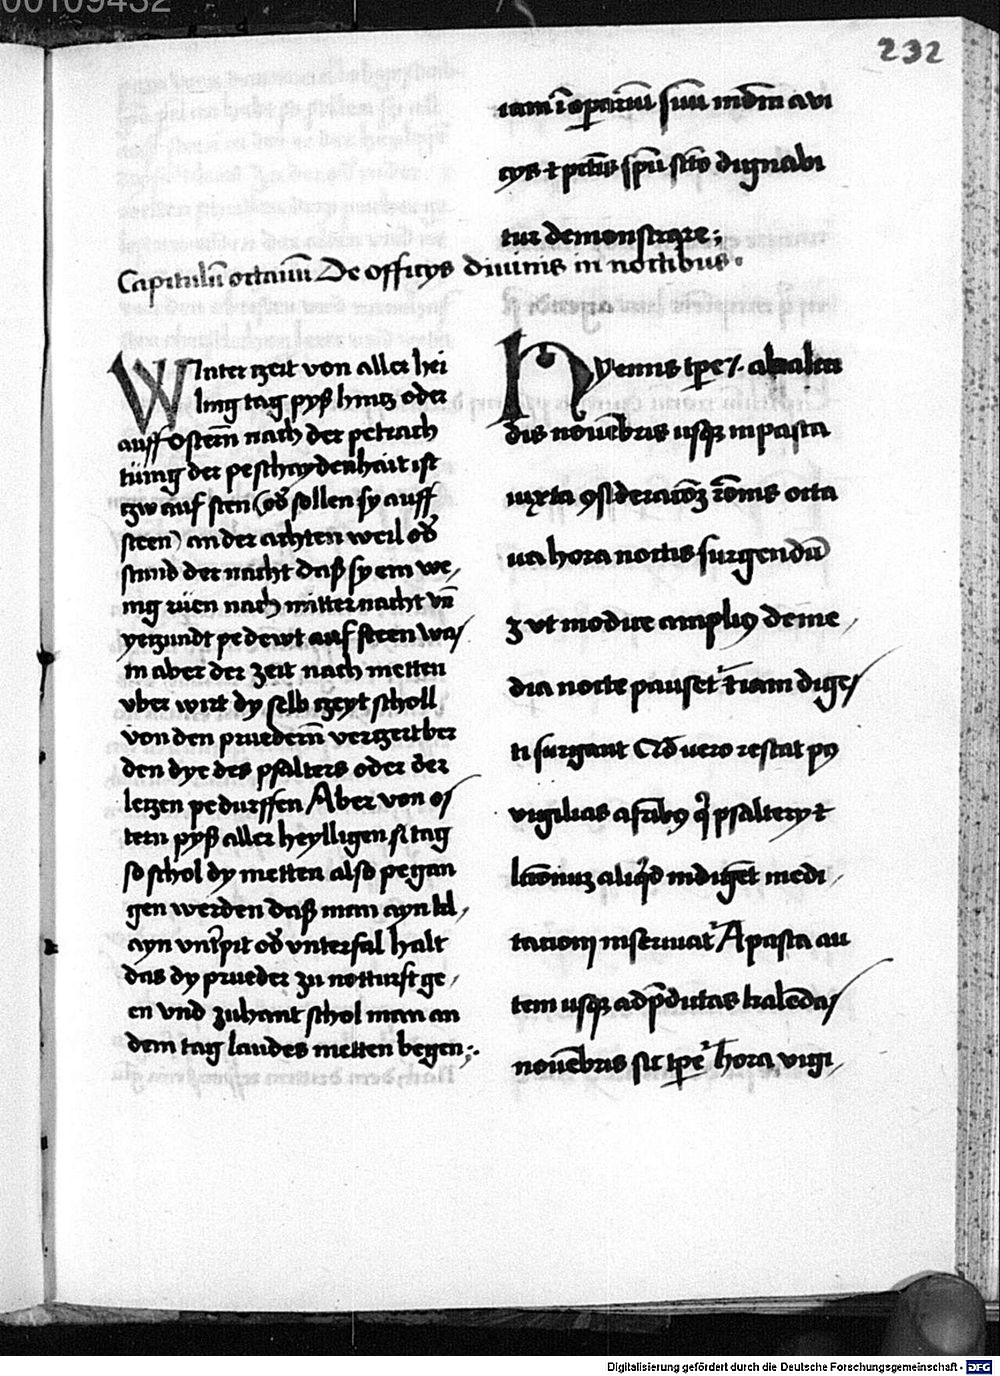 00109432
232
iam ī op̄arium suū mūdm a vi
cys ⁊ pctīs spū scto dignabi
tur demonstrare;
Capitulū octauū De officys diuinis in noctibus.
Winter zeit von aller hei
ling tag pyß hincz oder
auff osterñ nach der petrach
tūng der peschaydenhait ist
tzw auf sten (od̄ sollen sy auff
steen) an der achten weil od̄
stund der nacht daß sy ein we/
nig rüen nach mitternacht vn̄
yetzundt pedewt auf steen wa/
in aber der zeit nach metten
vber wirt dy selb tzeyt scholl
von den pruederñ verzert ber
den dye des psalters oder der
letzen pedurffen Aber von os
tern pyß aller heylligen s̄t tag
so schol dy metten also pegan
gen werden daß man ayn kl/
ayn vnt̄pit od̄ vnterfal halt
das dy prueder zu notturft ge/
en vnd zuhant schol man an
dem tag laudes metten begen;.
Hyemis tp̄e /. a kalen
dis nouēbris usqꝫ in pasca
iuxta ꝯsideracōꝫ rōnis octa
ua hora noctis surgendū
ꝫ vt modice ampliꝰ de me/
dia nocte pauset̄ ⁊ iam diges
ti surgant Qd̄ uero restat pꝰ
vigilias a fr̄ibꝰ q̄ psaltery ⁊
lcōnuꝫ aliq̄d indigēt medi/
tacioni inseruiat̄ A pasca au
tem usqꝫ ad p̄dictas kalēdas
nouēbris sic tp̄et̄ hora vigi/
Digitalisierung gefördert durch die Deutsche Forschungsgemeinschaft - DFG